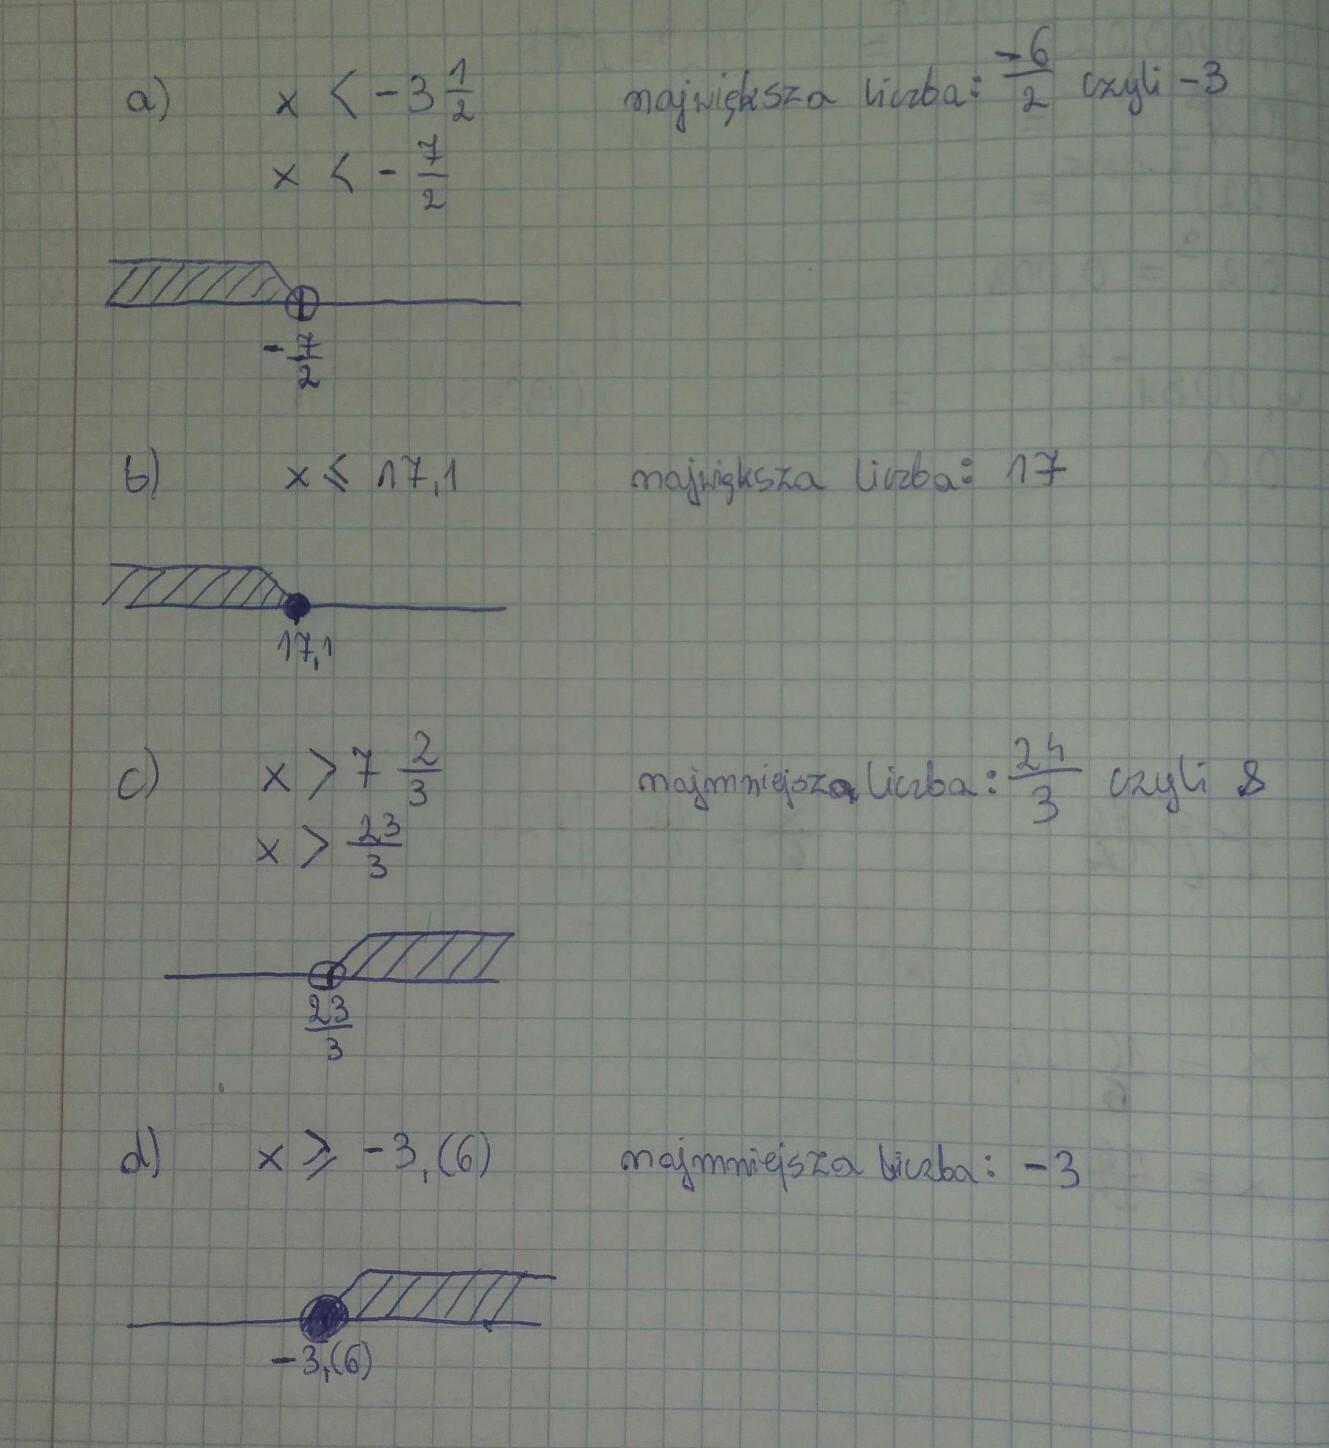 a) x < -3 1/2 największa liczba: -6/2 czyli -3
x < - 7/2
- 7/2
b) x ≤ 17,1 największa liczba: 17
17,1
c) x > 7 2/3 najmniejsza liczba: 24/3 czyli 8
x > 23/3
23/3
d) x ⩾ -3,(6) najmniejsza liczba: -3
-3,(6)